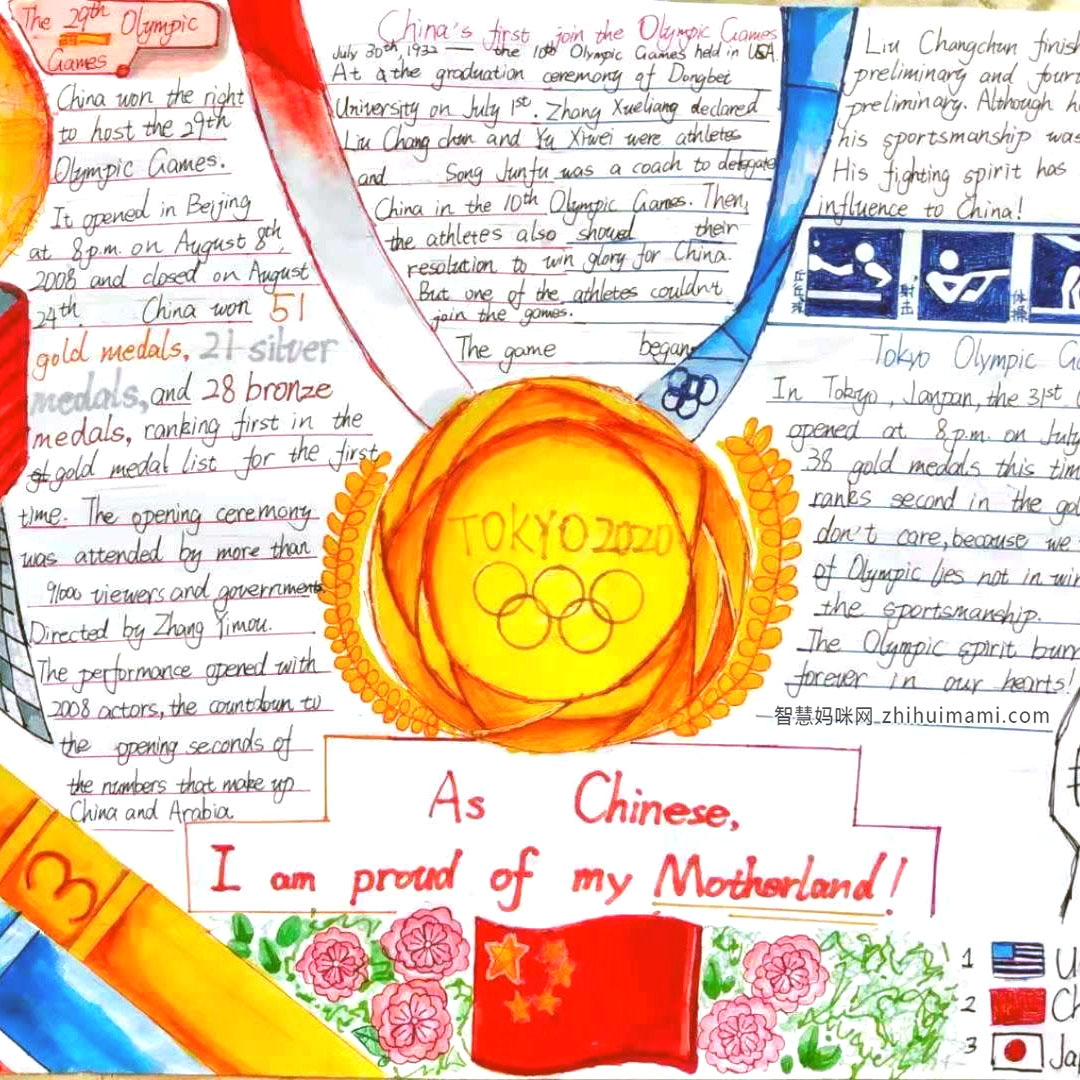 The 29th Olympic
Games
China won the right
to host the 29th
Olympic Games.
It opened in Beijing
at 8 p.m. on August 8th,
2008 and closed on August
24th. China won 51
gold medals, 21 silver
medals, and 28 bronze
medals, ranking first in the
gold medal list for the first
time. The opening ceremony
was attended by more than
91000 viewers and governments.
Directed by Zhang Yimou.
The performance opened with
2008 actors, the countdown to
the opening seconds of
the numbers that make up
China and Arabia
China's first join the Olympic Games
July 30th, 1932 — the 10th Olympic Games held in USA.
At the graduation ceremony of Dongbei
University on July 1st. Zhang Xueliang declared
Liu Chang chun and Yu Xiwei were athletes
and Song Junfu was a coach to delegate
China in the 10th Olympic Games. Then,
the athletes also showed their
resolution to win glory for China.
But one of the athletes couldn't
join the games.
The game began
Liu Changchun finish
preliminary and four
preliminary. Although h
his sportsmanship was
His fighting spirit has
influence to China!
乒乓球
射击
体操
Tokyo Olympic Ga
In Tokyo, Janpan, the 31st
opened at 8 p.m. on July
38 gold medals this tim
ranks second in the go
don't care, because we
of Olympic lies not in win
the sportsmanship.
The Olympic spirit burn
forever in our hearts!
智慧妈咪网 zhihuimami.com
TOKYO 2020
As Chinese,
I am proud of my Motherland!
3
1 U
2 Ch
3 Jap